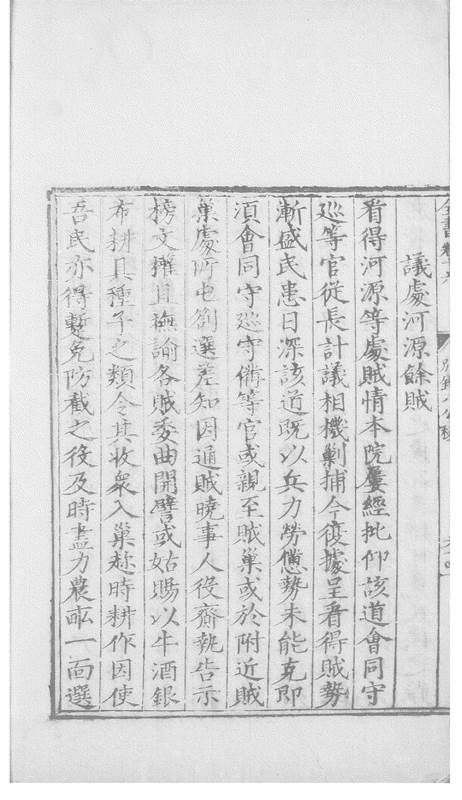 議處河源餘賊
看得河源等處賊情本院屢經批仰該道會同守
巡等官從長計議相機剿捕今復據呈看得賊勢
漸盛民患日深該道既以兵力勞憊勢未能克即
須會同守巡守備等官或親至賊巢或於附近賊
巢處所屯劄選差知因通賊曉事人役齎執告示
榜文權且撫諭各賊委曲開譬或姑賜以牛酒銀
布耕具種子之類令其收衆入巢趂時耕作因使
吾民亦得蹔免防截之役及時盡力農畆一面選